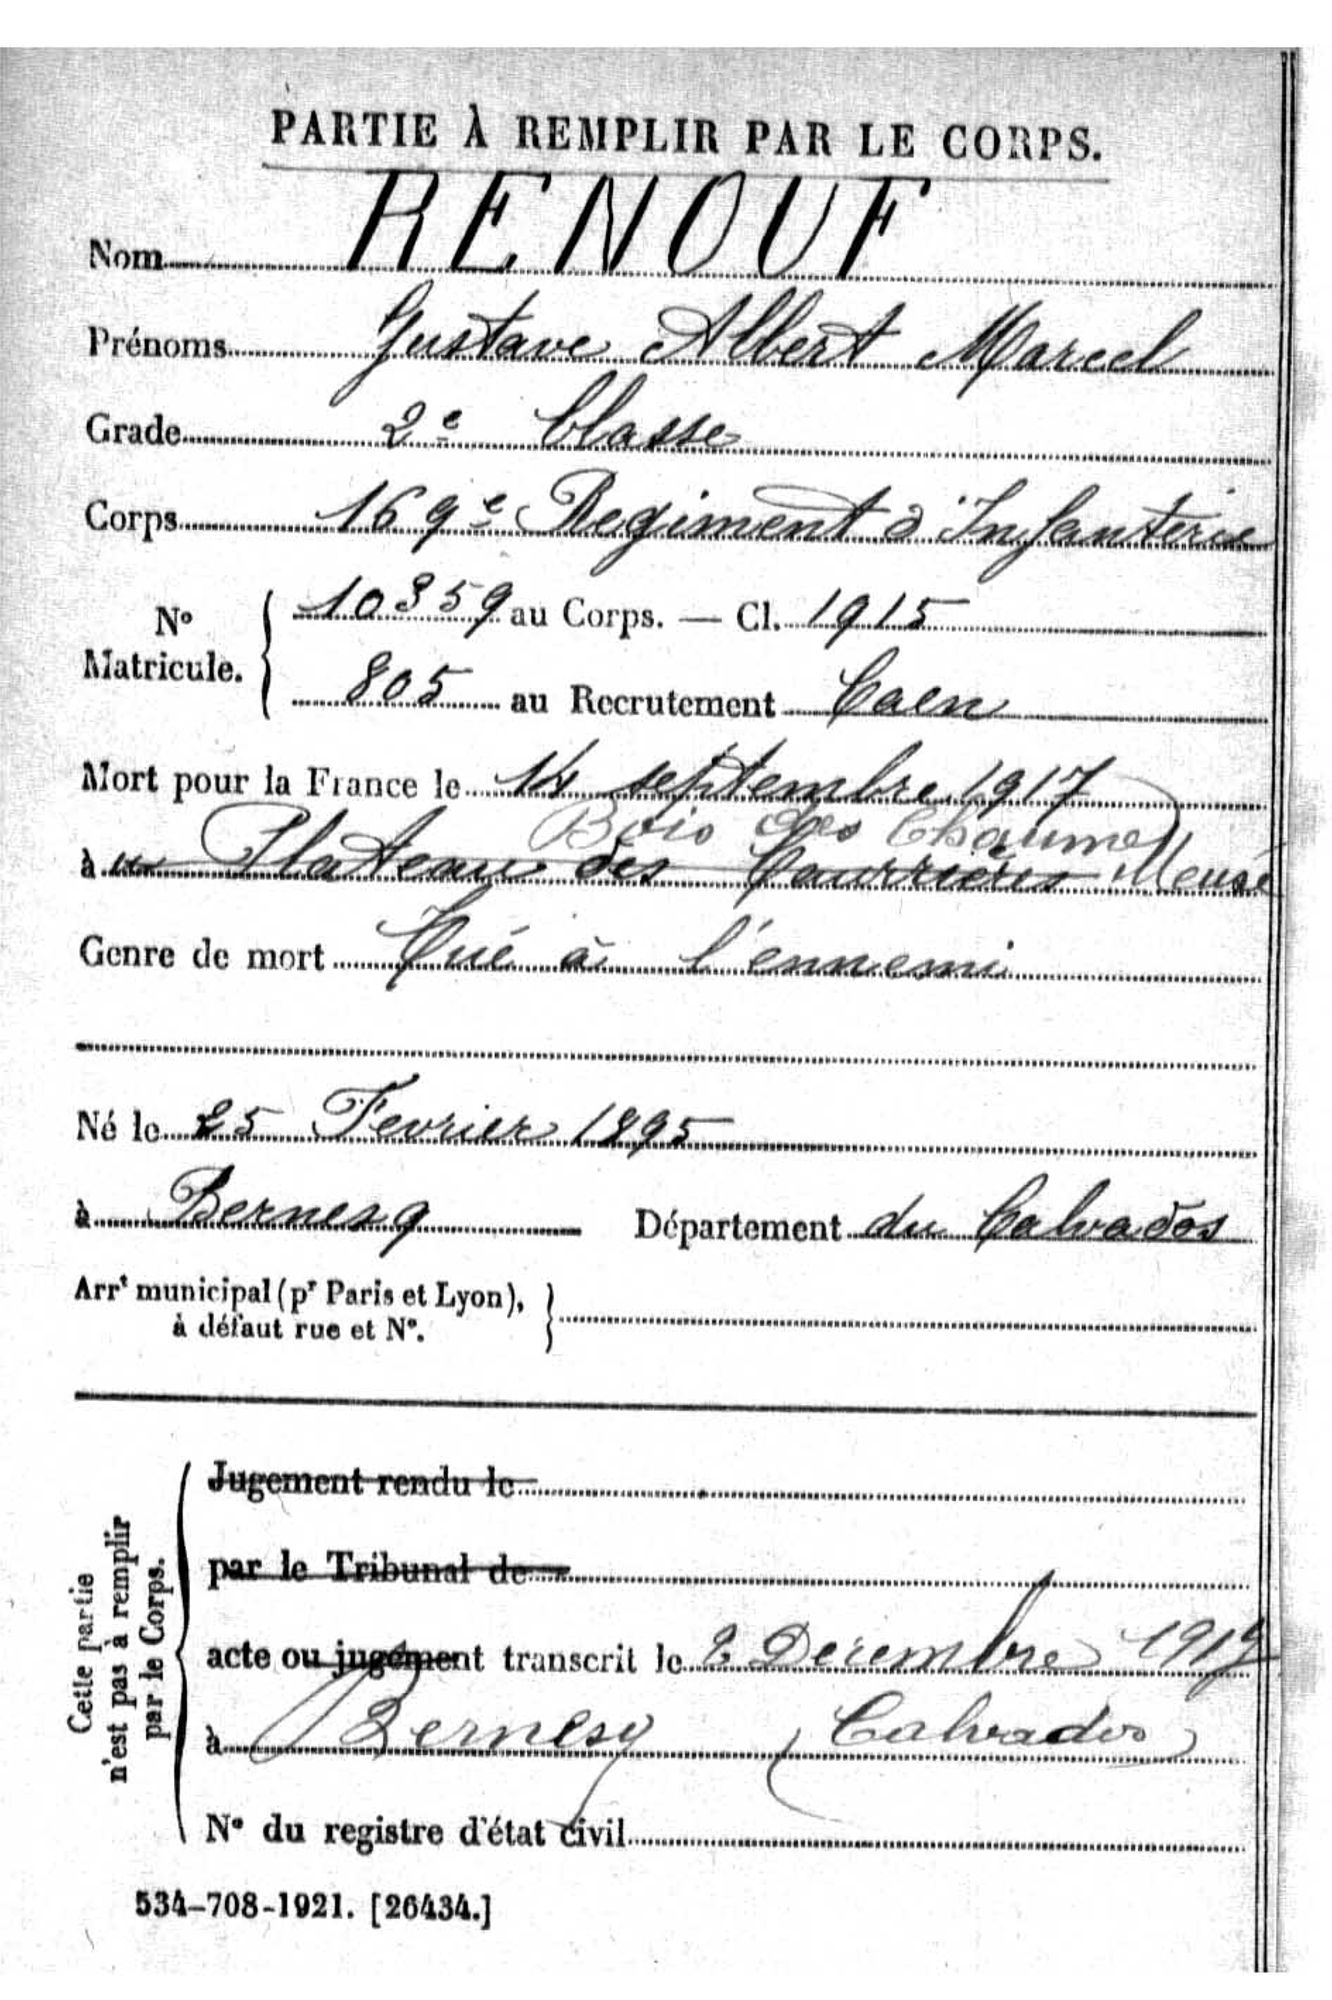 PARTIE À REMPLIR PAR LE CORPS.
Nom RENOUF
Prénoms Gustave Albert Marcel
Grade 2e Classe
Corps 169e Regiment d'Infanterie
No Matricule. { 10359 au Corps. — Cl. 1915
805 au Recrutement Caen
Mort pour la France le 14 septembre 1917
Bois des Chaumes
à au Plateau des Caurrières Meuse
Genre de mort Tué à l'ennemi
Né le 25 Fevrier 1895
à Bernesq Département du Calvados
Arrt municipal (pr Paris et Lyon),
à défaut rue et No.
Cette partie
n'est pas à remplir
par le Corps.
Jugement rendu le
par le Tribunal de
acte ou jugement transcrit le 2 Decembre 1917
à Bernesq (Calvados)
No du registre d'état civil
534-708-1921. [26434.]